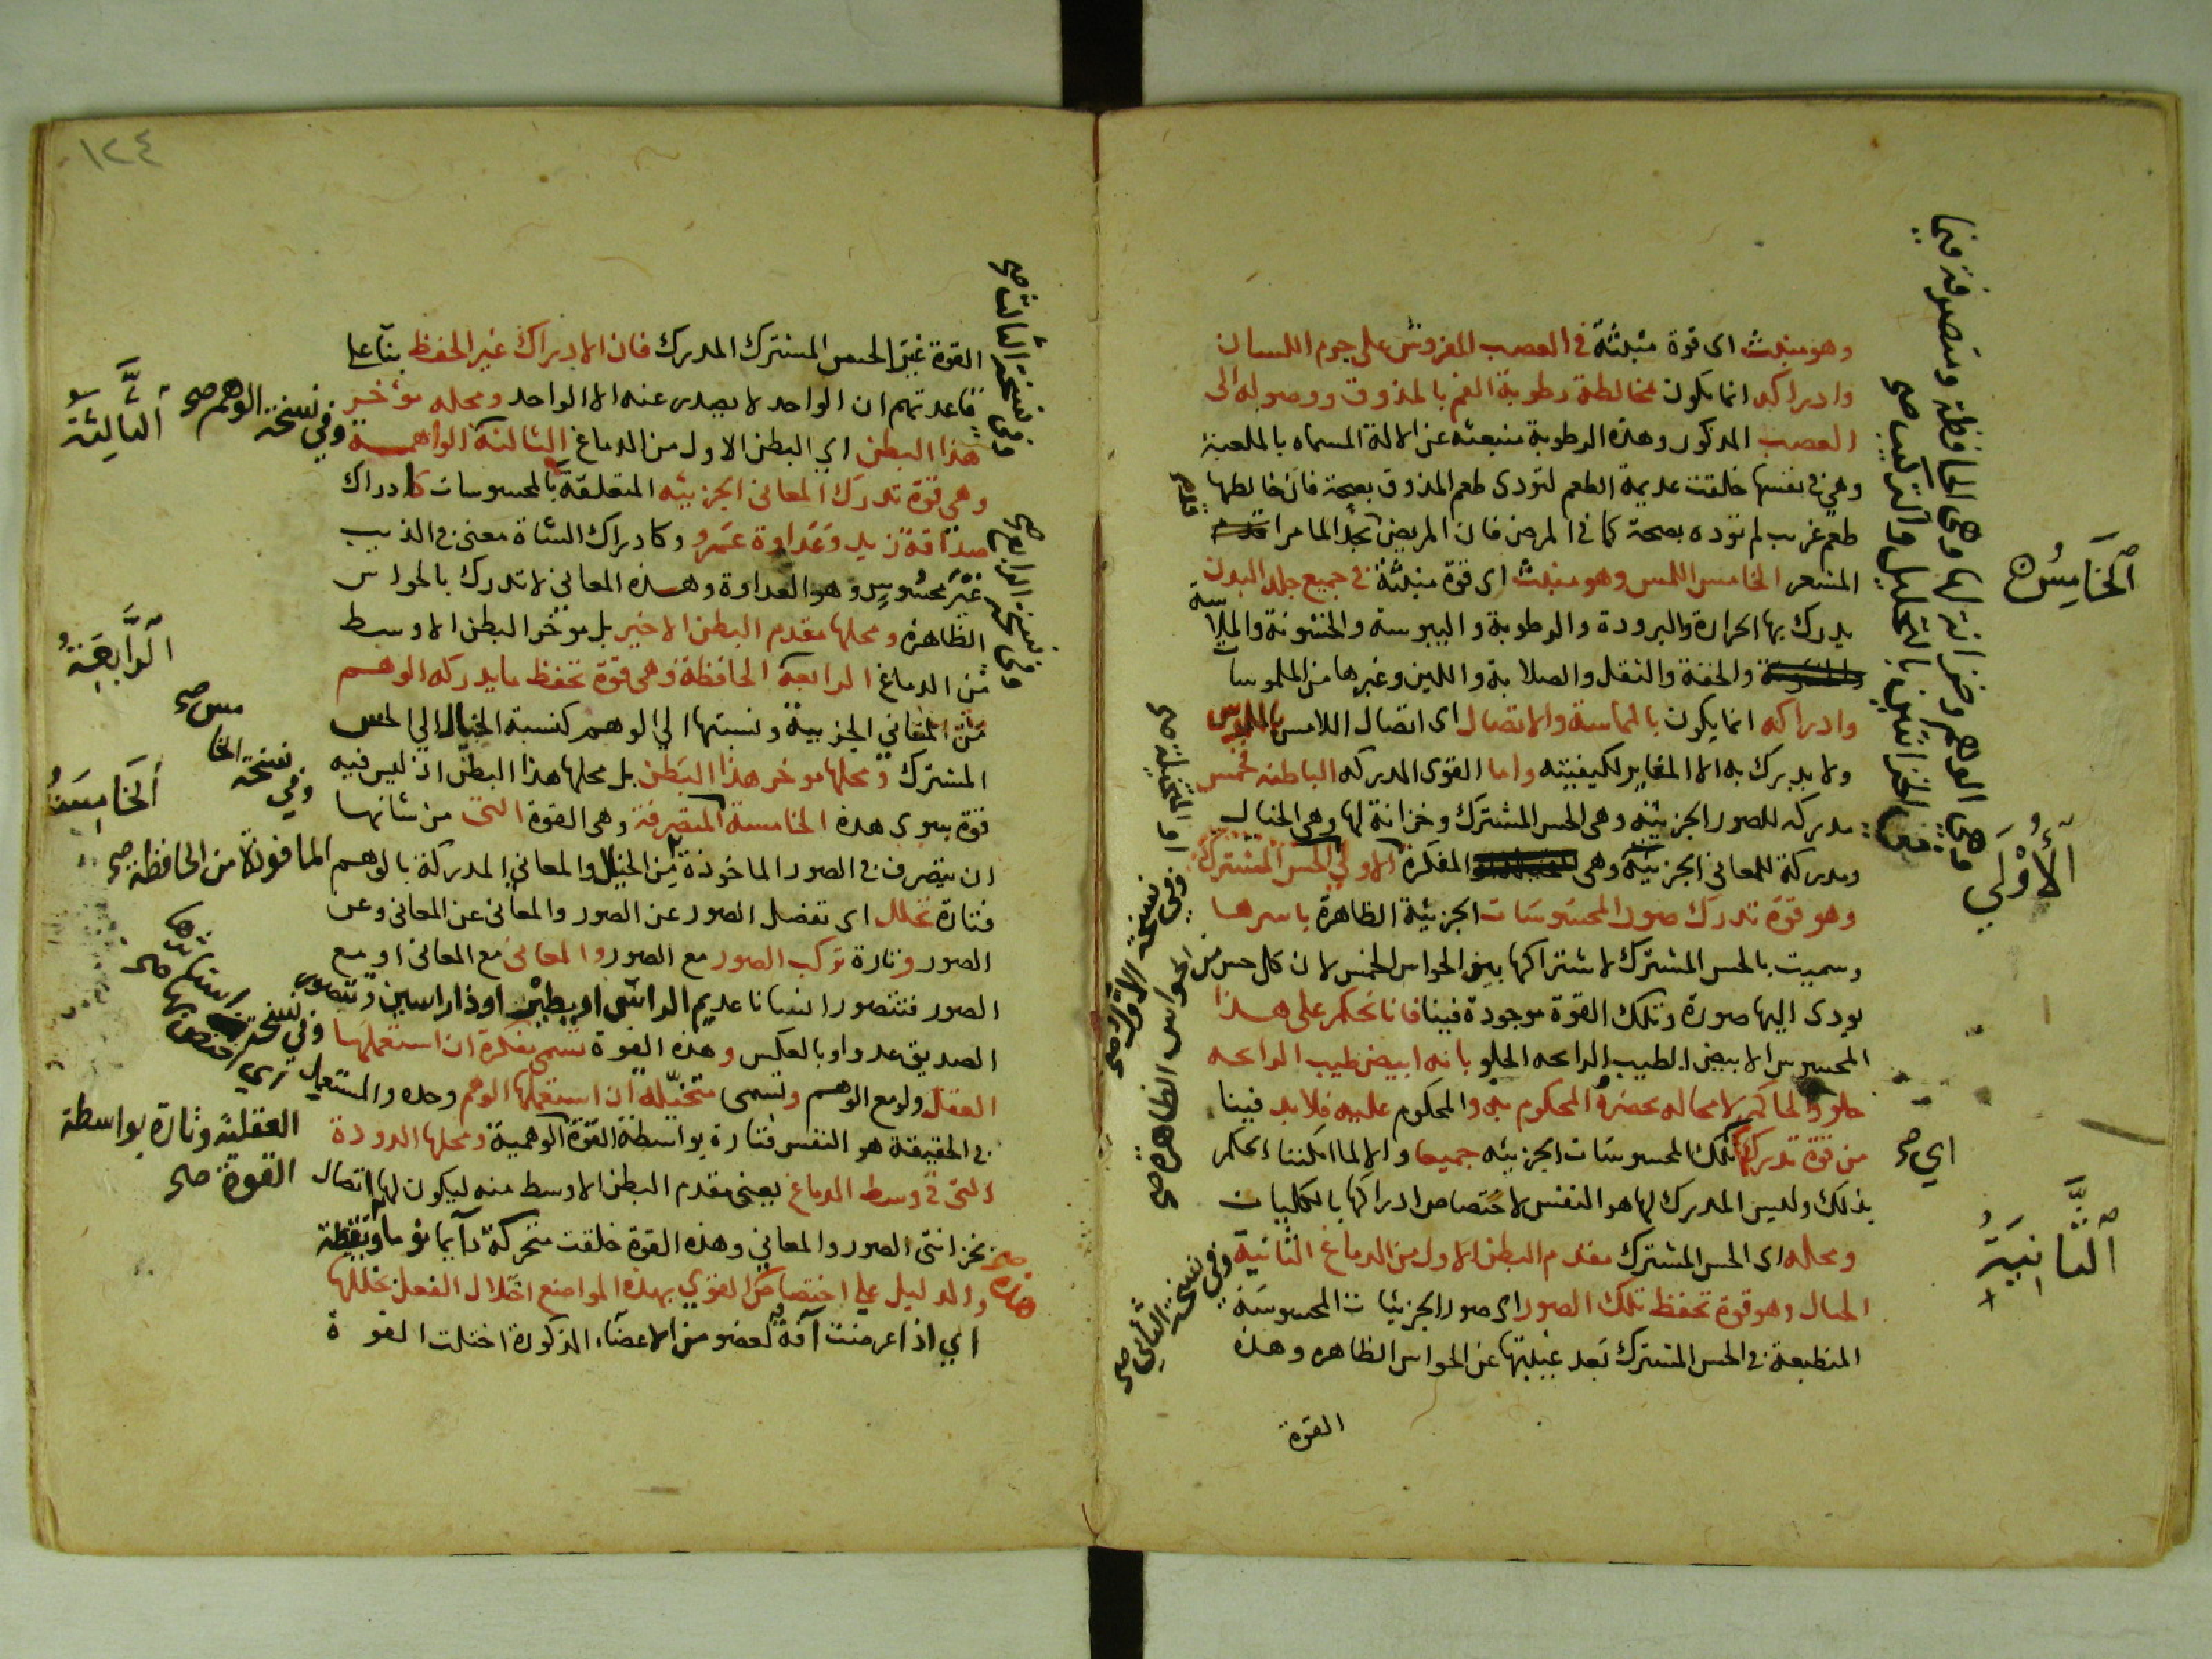 وهو منبث اى قوة منبثة في العصب المفروش على جرم اللسان
وادراكه انما يكون بمخالطة رطوبة الفم بالمذوق ووصوله الى
العصب المذكور وهذه الرطوبة منبعثه عن الالة المسماه بالملعبة
وهي في نفسها خلقت عديمة الطعم لتودى طعم المذوق بصحة فان خالطها
طعم غريب لم تؤده بصحة كما في المرض فان المريض يجد الما مرا
المشعر الخامس اللمس وهو منبث اى قوة منبثة في جميع جلد البدن
يدرك بها الحرارة والبرودة والرطوبة واليبوسة والخشونة والملاسة
والخفة والثقل والصلابة واللين وغيرها من الملموسات
وادراكه انما يكون بالمماسة والاتصال اى اتصال اللامس بالملموس
ولا يدرك به الا المغاير لكيفيته واما القوى المدركه الباطنه فخمس
مدركه للصور الجزئيه وهى الحس المشترك وخزانة لها وهى الخيال
ومدركة للمعانى الجزئية وهى المفكرة الاولى الحس المشترك
وهو قوة تدرك صور المحسوسات الجزئية الظاهرة باسرها
وسميت بالحس المشترك لاشتراكها بين الحواس الخمس لان كل حس من الحواس الظاهرة صح
يودى اليها صورة وتلك القوة موجودة فينا فانا نحكم على هذا
المحسوس الابيض الطيب الرائحه الحلو بانه ابيض طيب الرائحه
حلو والحاكم لا محاله يحضره المحكوم به والمحكوم عليه فلا بد فينا
من قوة تدرك تلك المحسوسات الجزئيه جميعا والا لما امكننا الحكم
بذلك وليس المدرك لها هو النفس لاختصاص ادراكها بالكليات
ومحله اى الحس المشترك مقدم البطن الاول من الدماغ الثانية
الخيال وهو قوة تحفظ تلك الصور اى صور الجزئيات المحسوسة
المنطبعة في الحس المشترك بعد غيبتها عن الحواس الظاهره وهذه
القوة
الخامس
الأولى
اي صح
الثانية
وهى الوهم وخزانة لها وهى الحافظة ومتصرفة فيما
في الخزانتين بالتحليل والتركيب صح
وفي نسخة الاول صح
وفي نسخة الثاني صح
١٢٤
القوة غير الحس المشترك المدرك فان الادراك غير الحفظ بناء على
قاعدتهم ان الواحد لا يصدر عنه الا الواحد ومحله مؤخر
هذا البطن اي البطن الاول من الدماغ الثالثة الواهمة
وهى قوة تدرك المعانى الجزئيه المتعلقة بالمحسوسات كادراك
صداقة زيد وعداوة عمرو وكادراك الشاة معنى في الذيب
غير محسوس وهو العداوة وهذه المعاني لا تدرك بالحواس
الظاهرة ومحلها مقدم البطن الاخير بل مؤخر البطن الاوسط
من الدماغ الرابعة الحافظة وهى قوة تحفظ ما يدركه الوهم
من المعاني الجزئية ونسبتها الي الوهم كنسبة الخيال الي الحس
المشترك ومحلها موخر هذا البطن بل محلها هذا البطن اذ ليس فيه
قوة سوى هذه الخامسة المتصرفة وهى القوة التى من شانها
ان يتصرف في الصور الماخوذة من الخيال والمعاني المدركة بالوهم
فتارة تحلل اى تفصل الصور عن الصور والمعانى عن المعانى وعن
الصور وتارة تركب الصور مع الصور والمعانى مع المعانى او مع
الصور فتتصور انسانا عديم الراس او ذا راسين وتتصور
الصديق عدوا وبالعكس وهذه القوة تسمى مفكرة ان استعملها
العقل ولو مع الوهم وتسمى متخيلة ان استعملها الوهم وحده والمستعمل
في الحقيقة هو النفس فتارة بواسطة القوة الوهمية ومحلها الدودة
التى في وسط الدماغ يعنى مقدم البطن الاوسط منه ليكون لها اتصال
بخزانتى الصور والمعاني وهذه القوة خلقت متحركة دآيما نوما ويقظة
والدليل على اختصاص القوي بهذه المواضع اختلال الفعل بخللها
اي اذا عرضت آفة لعضو من الاعضاء المذكورة اختلت القوة
وفي نسخة الثالث صح
وفي نسخة الرابع صح
الثالثة
وفي نسخة الوهم صح
الرابعة
وفي نسخة الخامس صح
الخامسة
الماخوذة من الحافظة صح
العقلية وتارة بواسطة
القوة صح